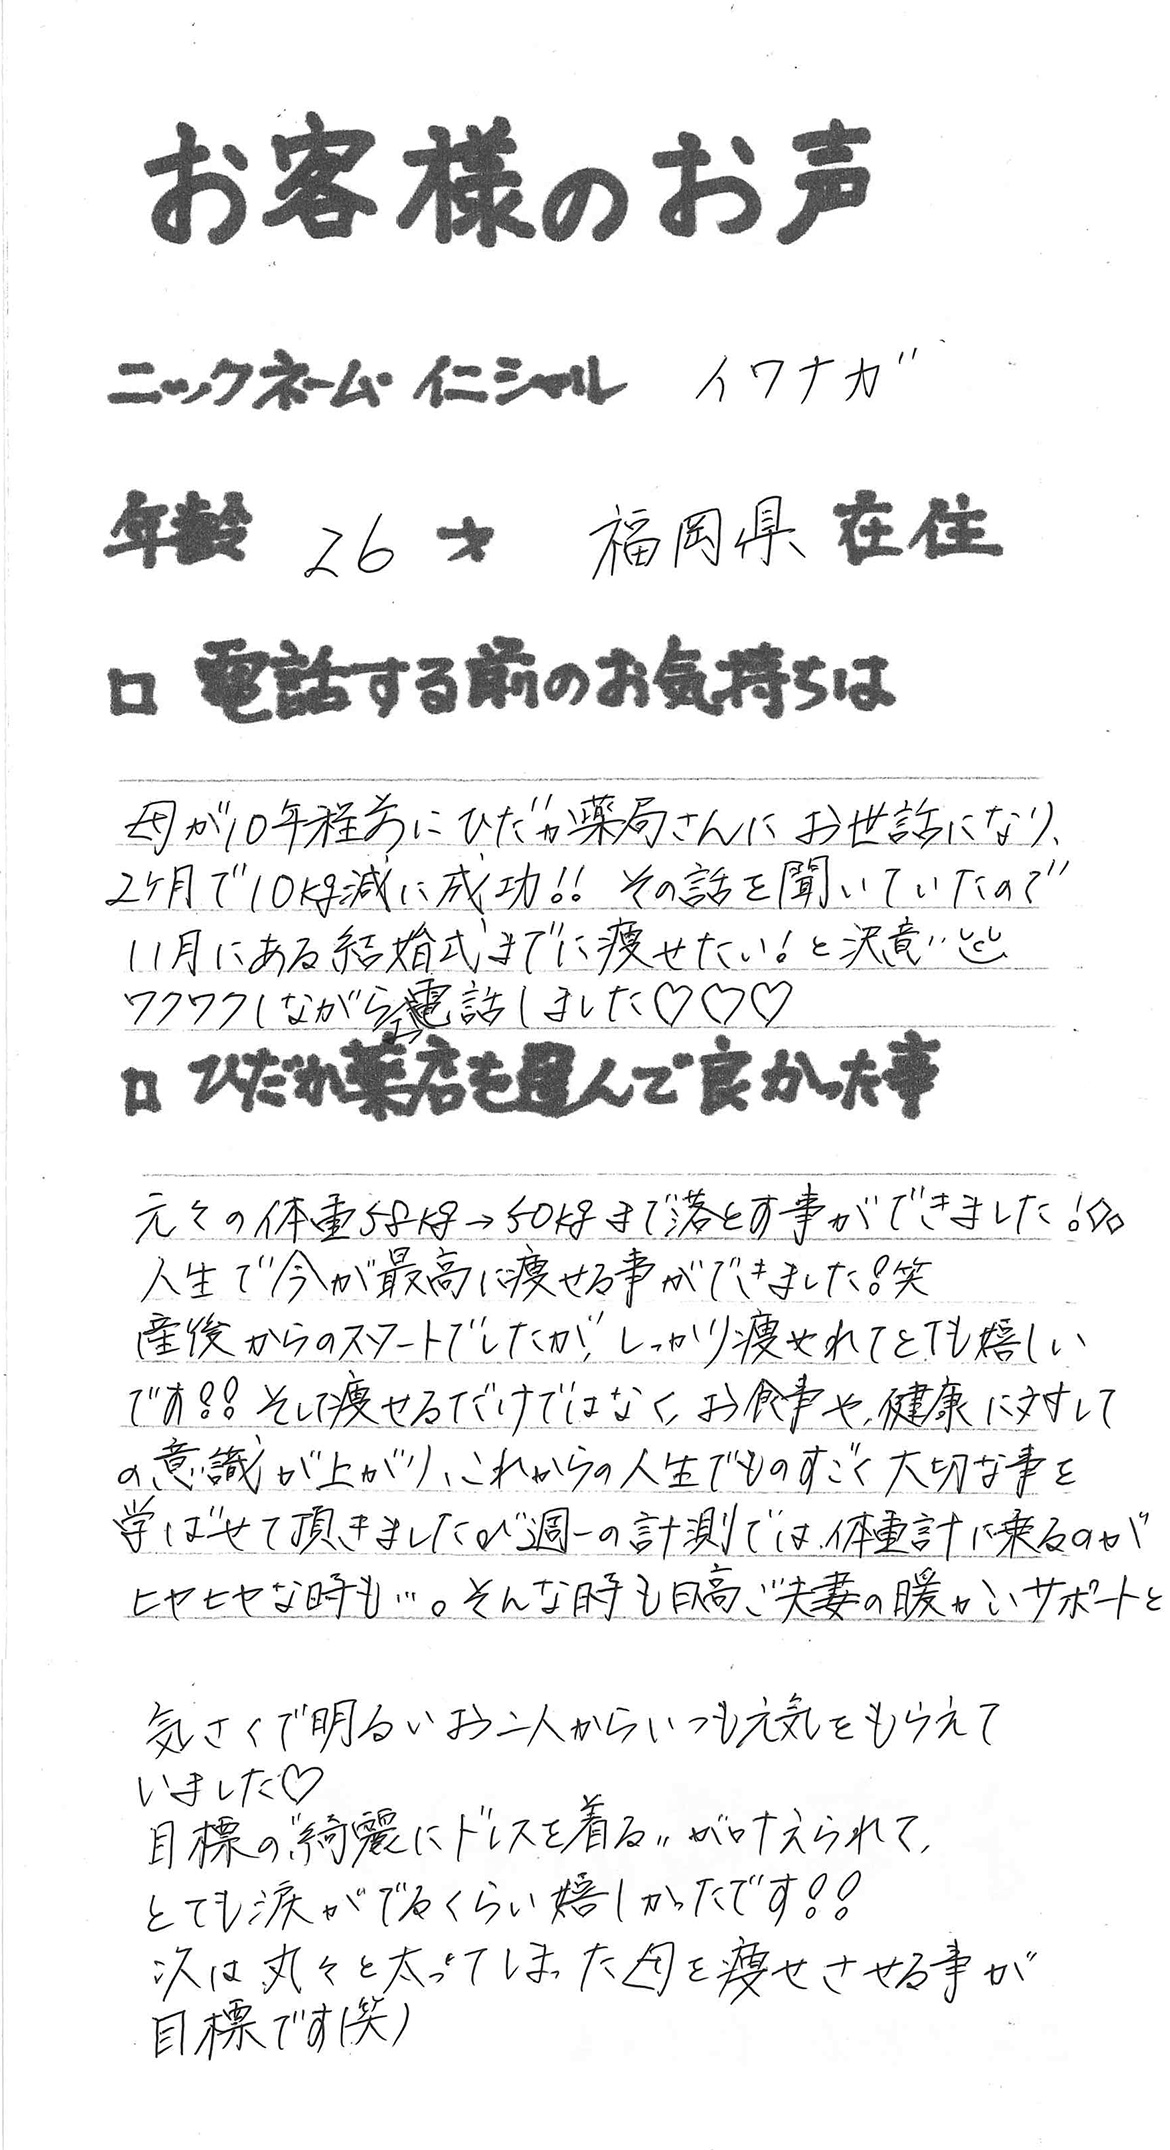 お客様のお声
ニックネーム・イニシャル イワナガ
年齢 26 才 福岡県 在住
□ 電話する前のお気持ちは
母が10年程前にひだか薬局さんにお世話になり、
2ヶ月で10kg減に成功!! その話を聞いていたので
11月にある結婚式までに痩せたい！と決意‥
ワクワクしながらお電話しました♡♡♡
□ ひだか薬店を選んで良かった事
元々の体重58kg→50kgまで落とす事ができました！◇◇
人生で今が最高に痩せる事ができました！笑
産後からのスタートでしたが、しっかり痩せれてとても嬉しい
です!! そして痩せるだけではなく、お食事や、健康に対して
の意識が上がり、これからの人生でものすごく大切な事を
学ばせて頂きました。週一の計測では、体重計に乗るのが
ヒヤヒヤな時も…。そんな時も日高ご夫妻の暖かいサポートと
気さくで明るいお二人からいつも元気をもらえて
いました♡
目標の"綺麗にドレスを着る"が叶えられて、
とても涙がでるくらい嬉しかったです!!
次は丸々と太ってしまった母を痩せさせる事が
目標です(笑)